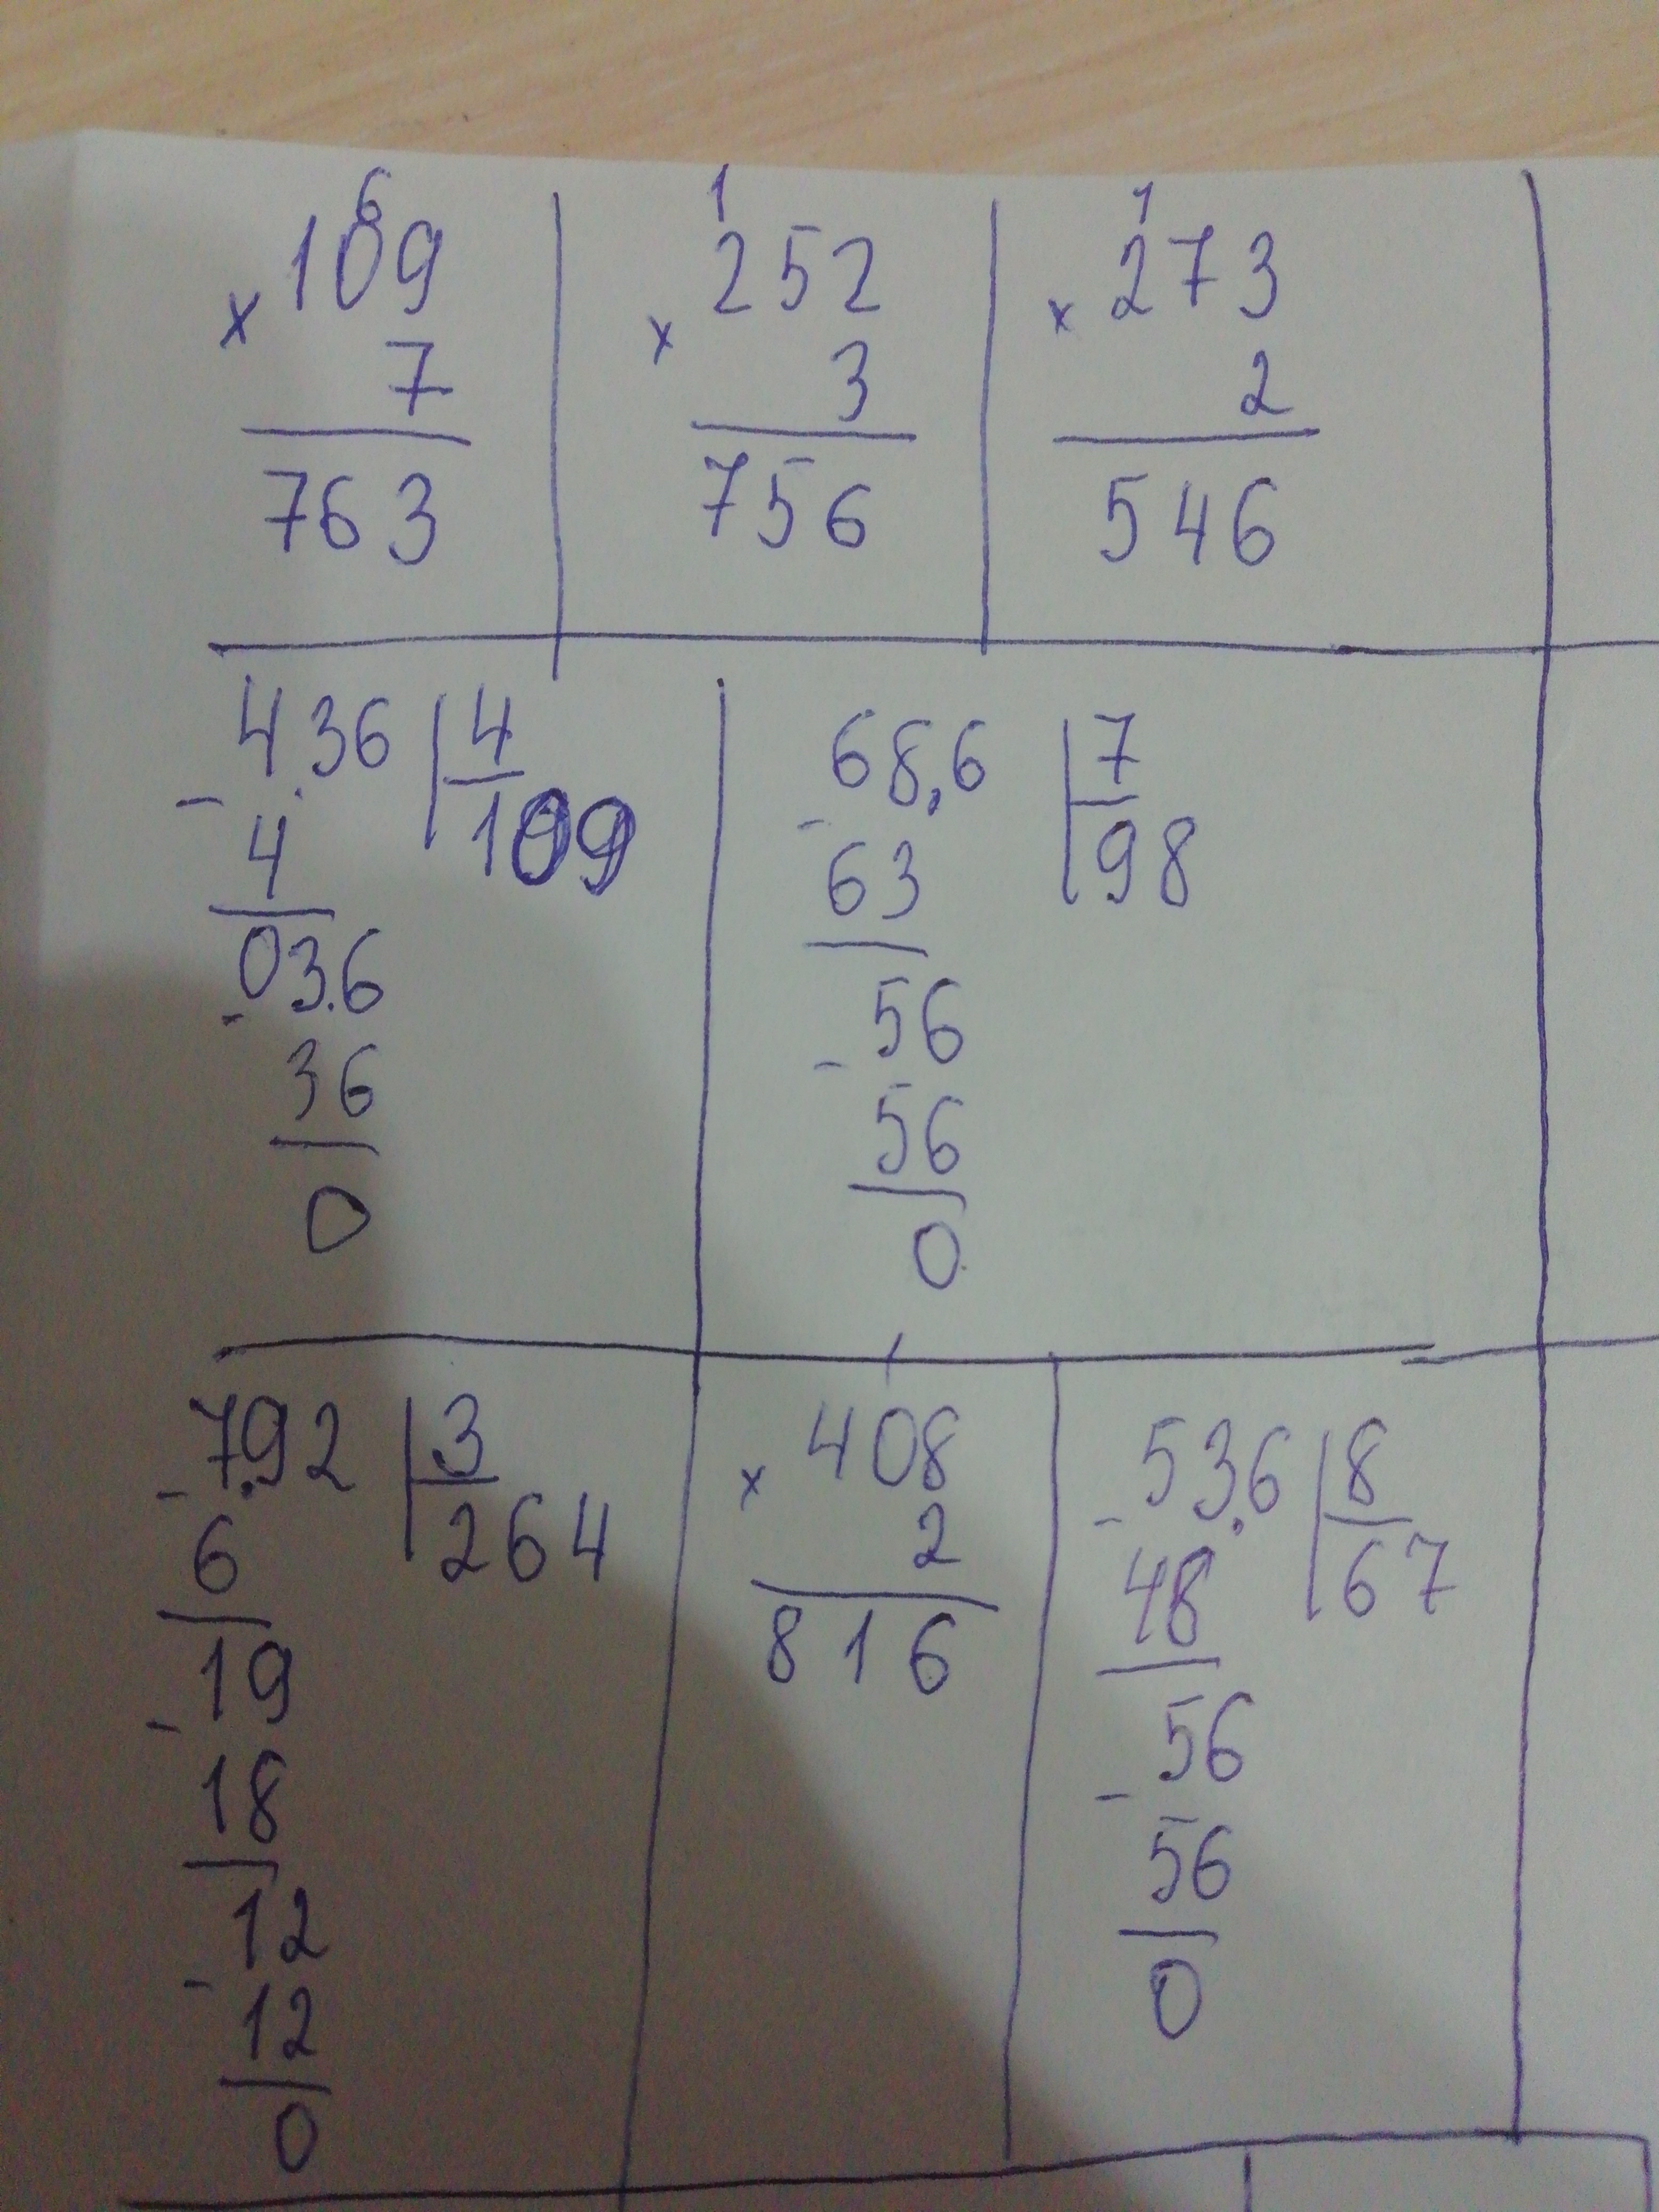 6
109
x
7
763
1
252
x
3
756
1
273
x
2
546
4.36 | 4
- 4
109
036
- 36
0
68,6 | 7
- 63
98
56
- 56
0
7.92 | 3
- 6
264
19
- 18
12
- 12
0
1
408
x
2
816
53.6 | 8
- 48
67
56
- 56
0